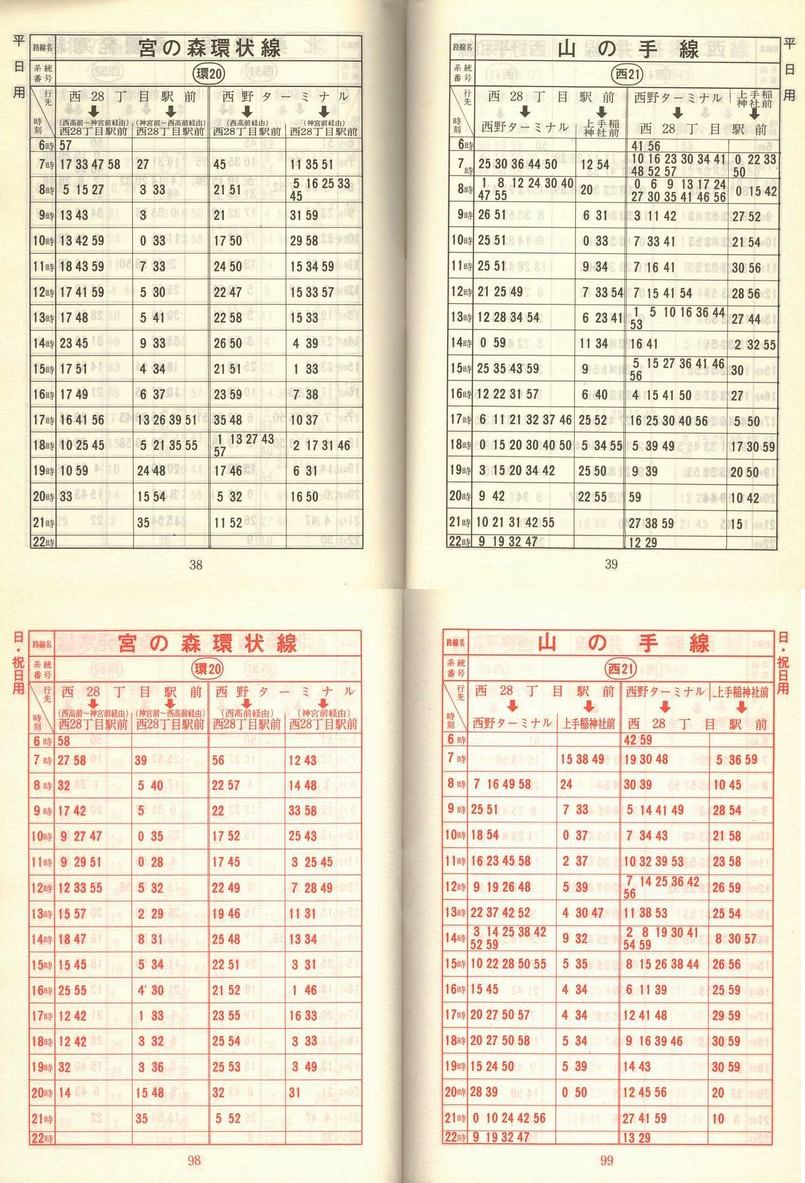 平日用
路線名 宮の森環状線
系統番号 環20
行先 時刻 西28丁目駅前 西野ターミナル
(西高前〜神宮前経由) 西28丁目駅前 (神宮前〜西高前経由) 西28丁目駅前 (西高前経由) 西28丁目駅前 (神宮前経由) 西28丁目駅前
6時 57
7時 17 33 47 58 27 45 11 35 51
8時 5 15 27 3 33 21 51 5 16 25 33 45
9時 13 43 3 21 31 59
10時 13 42 59 0 33 17 50 29 58
11時 18 43 59 7 33 24 50 15 34 59
12時 17 41 59 5 30 22 47 15 33 57
13時 17 48 5 41 22 58 15 33
14時 23 45 9 33 26 50 4 39
15時 17 51 4 34 21 51 1 33
16時 17 49 6 37 23 59 7 38
17時 16 41 56 13 26 39 51 35 48 10 37
18時 10 25 45 5 21 35 55 1 13 27 43 57 2 17 31 46
19時 10 59 24 48 17 46 6 31
20時 33 15 54 5 32 16 50
21時 35 11 52
22時
38
平日用
路線名 山の手線
系統番号 西21
行先 時刻 西28丁目駅前 西野ターミナル 上手稲神社前
西野ターミナル 上手稲神社前 西28丁目駅前
6時 41 56
7時 25 30 36 44 50 12 54 10 16 23 30 34 41 48 52 57 0 22 33 50
8時 1 8 12 24 30 40 47 55 20 0 6 9 13 17 24 27 30 35 41 46 56 0 15 42
9時 26 51 6 31 3 11 42 27 52
10時 25 51 0 33 7 33 41 21 54
11時 25 51 9 34 7 16 41 30 56
12時 21 25 49 7 33 54 7 15 41 54 28 56
13時 12 28 34 54 6 23 41 1 5 10 16 36 44 53 27 44
14時 0 59 11 34 16 41 2 32 55
15時 25 35 43 59 9 5 15 27 36 41 46 56 30
16時 12 22 31 57 6 40 4 15 41 50 27
17時 6 11 21 32 37 46 25 52 16 25 30 40 56 5 50
18時 0 15 20 30 40 50 5 34 55 5 39 49 17 30 59
19時 3 15 20 34 42 25 50 9 39 20 50
20時 9 42 22 55 59 10 42
21時 10 21 31 42 55 27 38 59 15
22時 9 19 32 47 12 29
39
日・祝日用
路線名 宮の森環状線
系統番号 環20
行先 時刻 西28丁目駅前 西野ターミナル
(西高前〜神宮前経由) 西28丁目駅前 (神宮前〜西高前経由) 西28丁目駅前 (西高前経由) 西28丁目駅前 (神宮前経由) 西28丁目駅前
6時 58
7時 27 58 39 56 12 43
8時 32 5 40 22 57 14 48
9時 17 42 5 22 33 58
10時 9 27 47 0 35 17 52 25 43
11時 9 29 51 0 28 17 45 3 25 45
12時 12 33 55 5 32 22 49 7 28 49
13時 15 57 2 29 19 46 11 31
14時 18 47 8 31 25 48 13 34
15時 15 45 5 34 22 51 3 31
16時 25 55 4 30 21 52 1 46
17時 12 42 1 33 23 55 16 33
18時 12 42 3 32 25 54 3 33
19時 32 3 36 25 53 3 49
20時 14 15 48 32 31
21時 35 5 52
22時
98
日・祝日用
路線名 山の手線
系統番号 西21
行先 時刻 西28丁目駅前 西野ターミナル 上手稲神社前
西野ターミナル 上手稲神社前 西28丁目駅前
6時 42 59
7時 15 38 49 19 30 48 5 36 59
8時 7 16 49 58 24 30 39 10 45
9時 25 51 7 33 5 14 41 49 28 54
10時 18 54 0 37 7 34 43 21 58
11時 16 23 45 58 2 37 10 32 39 53 23 58
12時 9 19 26 48 5 39 7 14 25 36 42 56 26 59
13時 22 37 42 52 4 30 47 11 38 53 25 54
14時 3 14 25 38 42 52 59 9 32 2 8 19 30 41 54 59 8 30 57
15時 10 22 28 50 55 5 35 8 15 26 38 44 26 56
16時 15 45 4 34 6 11 39 25 59
17時 20 27 50 57 4 34 12 41 48 29 59
18時 20 27 50 58 5 34 9 16 39 46 30 59
19時 15 24 50 5 39 14 43 30 59
20時 28 39 0 50 12 45 56 20
21時 0 10 24 42 56 27 41 59 10
22時 9 19 32 47 13 29
99